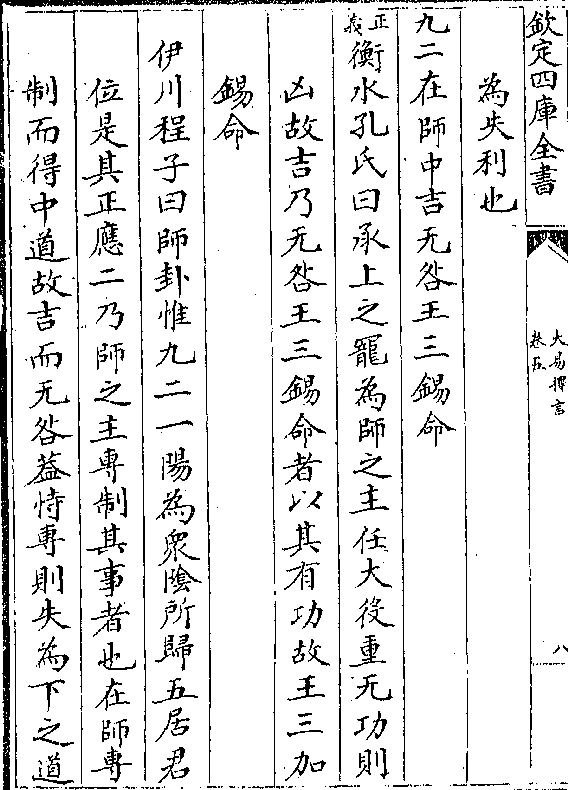 欽定四庫全書
大易擇言
卷五
八
為失利也
九二在師中吉无咎王三錫命
正義衡水孔氏曰承上之寵為師之主任大役重无功則
凶故吉乃无咎王三錫命者以其有功故王三加
錫命
伊川程子曰師卦惟九二一陽為衆陰所歸五居君
位是其正應二乃師之主專制其事者也在師專
制而得中道故吉而无咎葢恃專則失為下之道